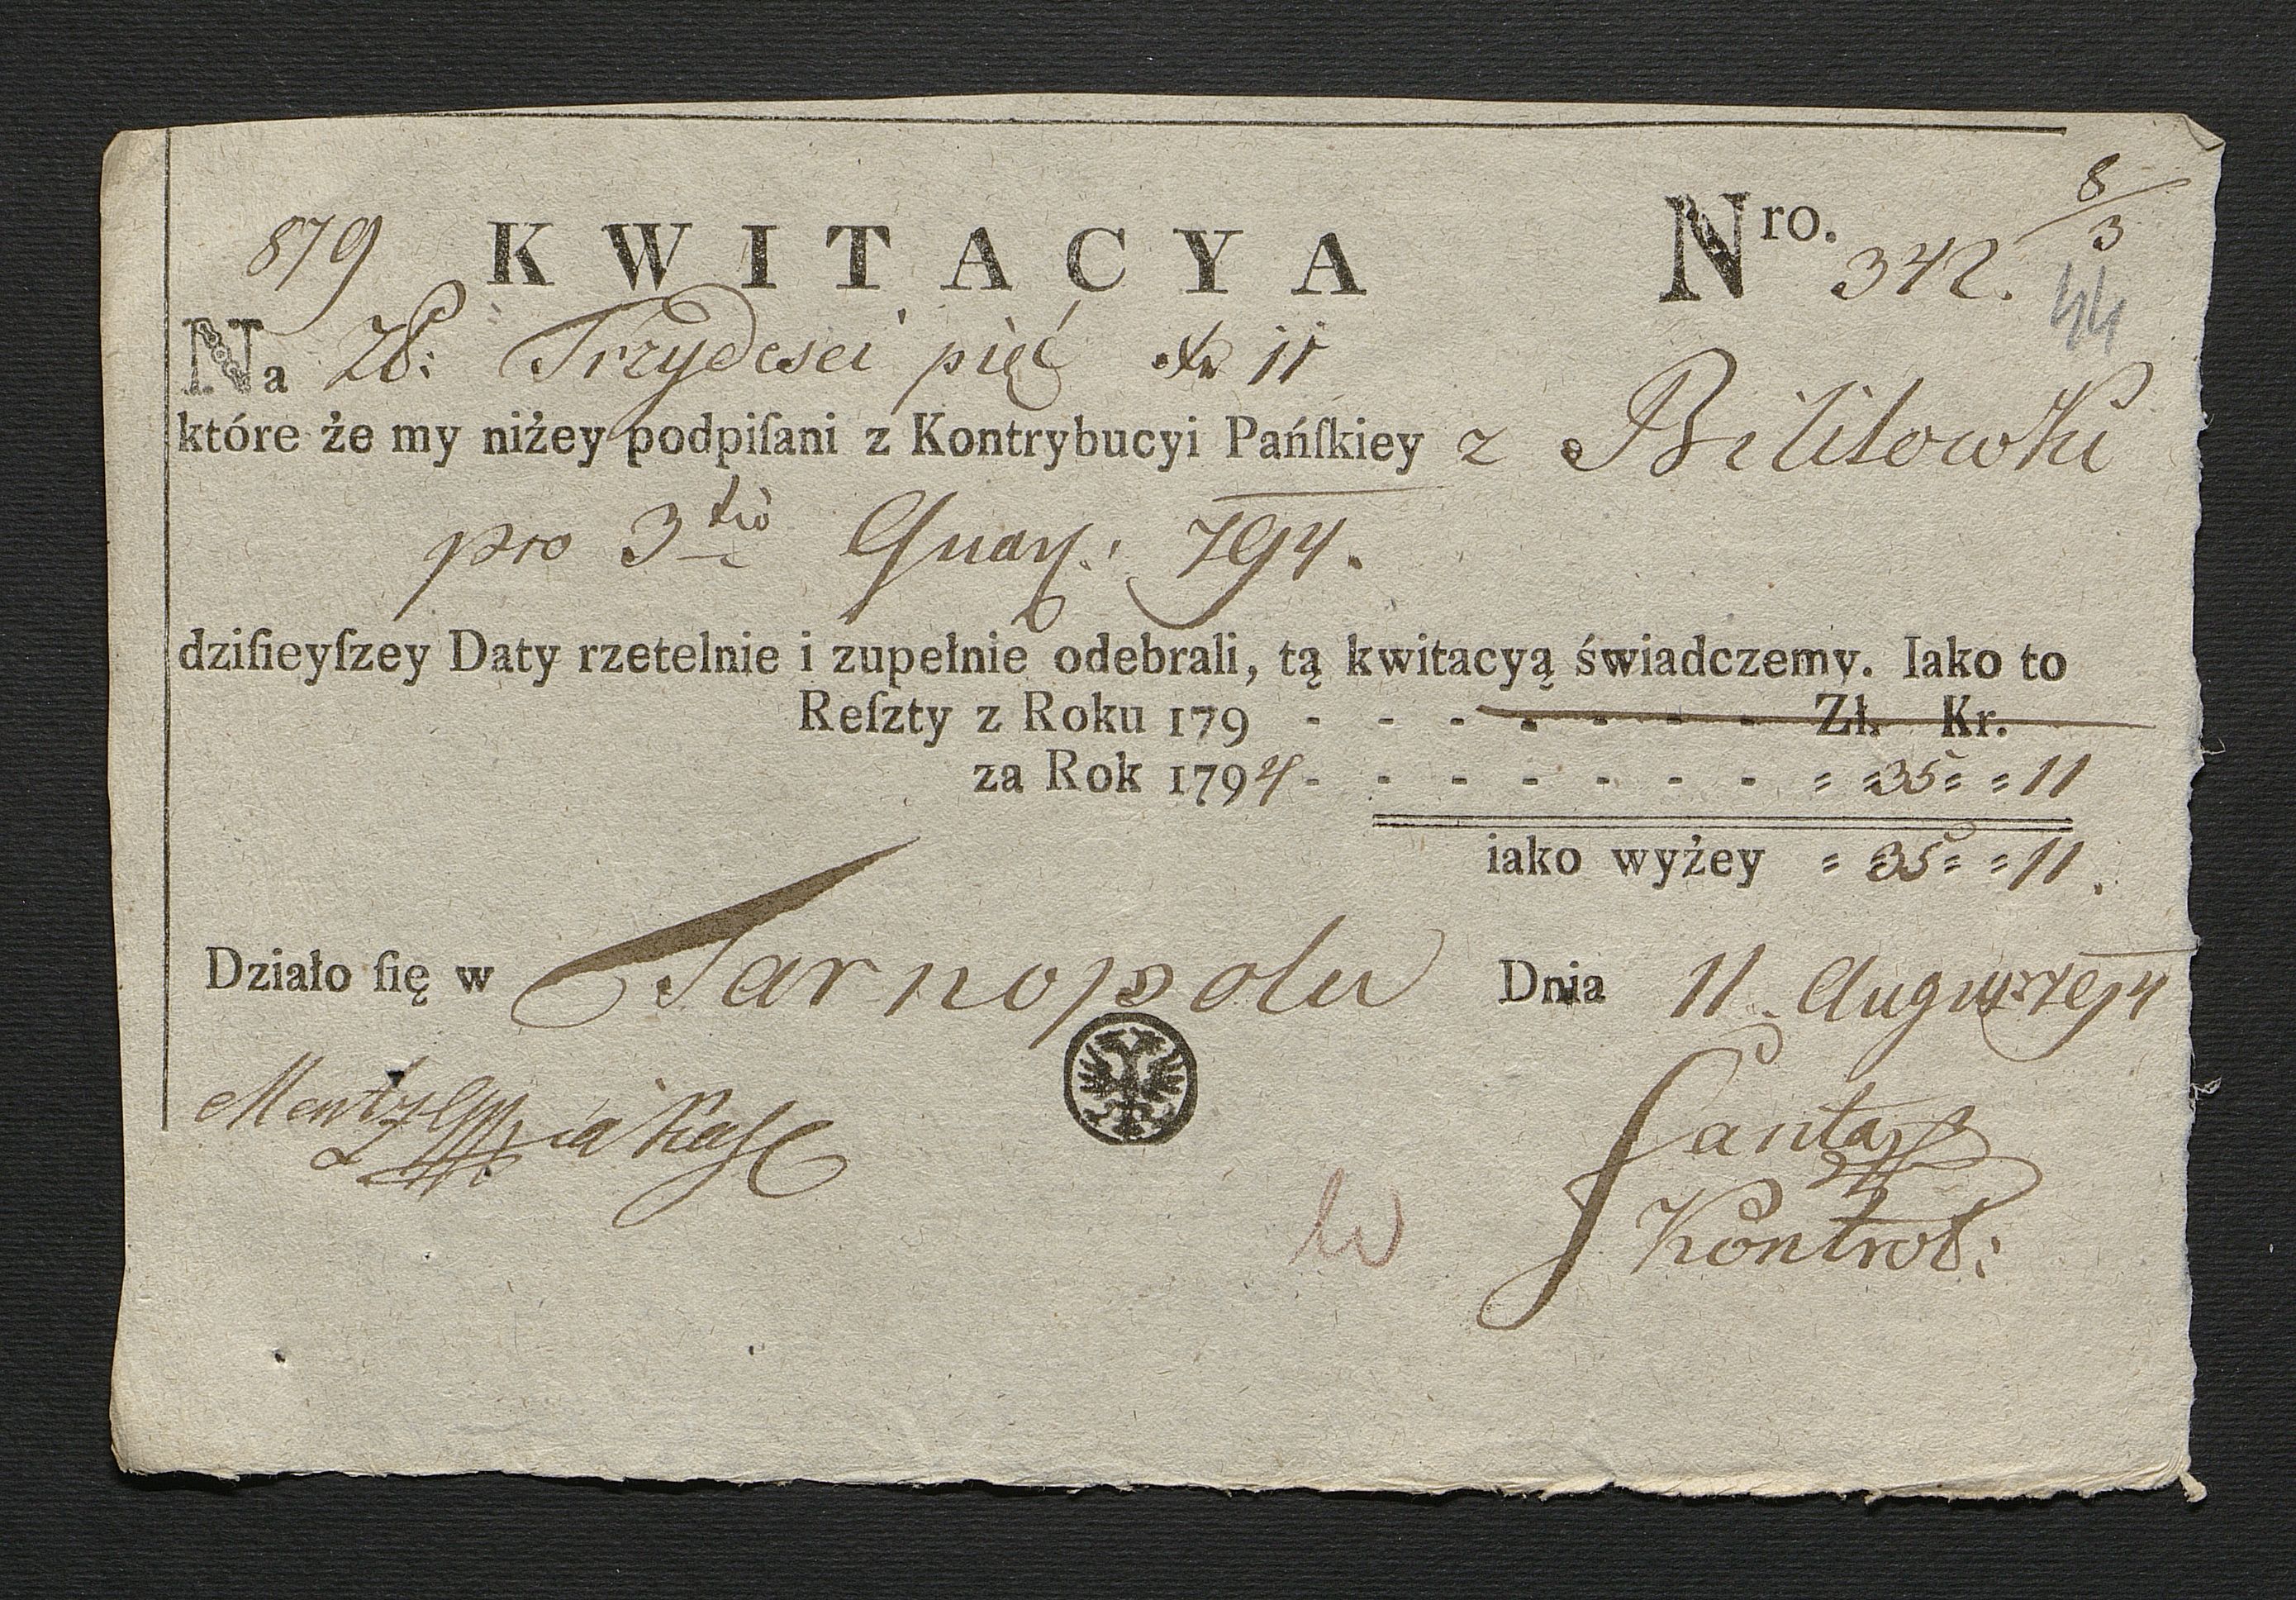 8/3
879 KWITACYA Nro. 342.
44
Na Zł: Trzydesci pięć Xr 11
które że my niżey podpiſani z Kontrybucyi Pańſkiey z Bilitowki
pro 3tio Quar: 794.
dziſieyſzey Daty rzetelnie i zupełnie odebrali, tą kwitacyą świadczemy. Iako to
Reſzty z Roku 179 - - - - - - - Zł. Kr.
za Rok 1794 - - - - - - - „ 35 „ 11
iako wyżey „ 35 „ 11.
Działo ſię w Tarnopolu Dnia 11. August 794
Kontrol: